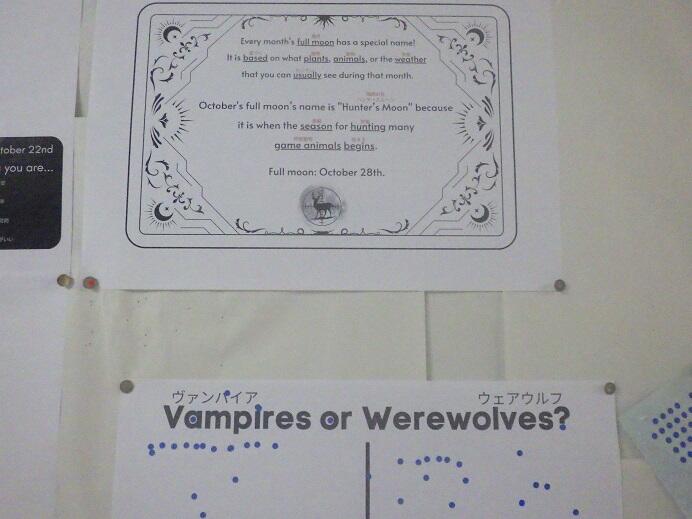 Every month's full moon has a special name!
It is based on what plants, animals, or the weather
that you can usually see during that month.
October's full moon's name is "Hunter's Moon" because
it is when the season for hunting many
game animals begins.
Full moon: October 28th.
tober 22nd
you are...
ヴァンパイア ウェアウルフ
Vampires or Werewolves?